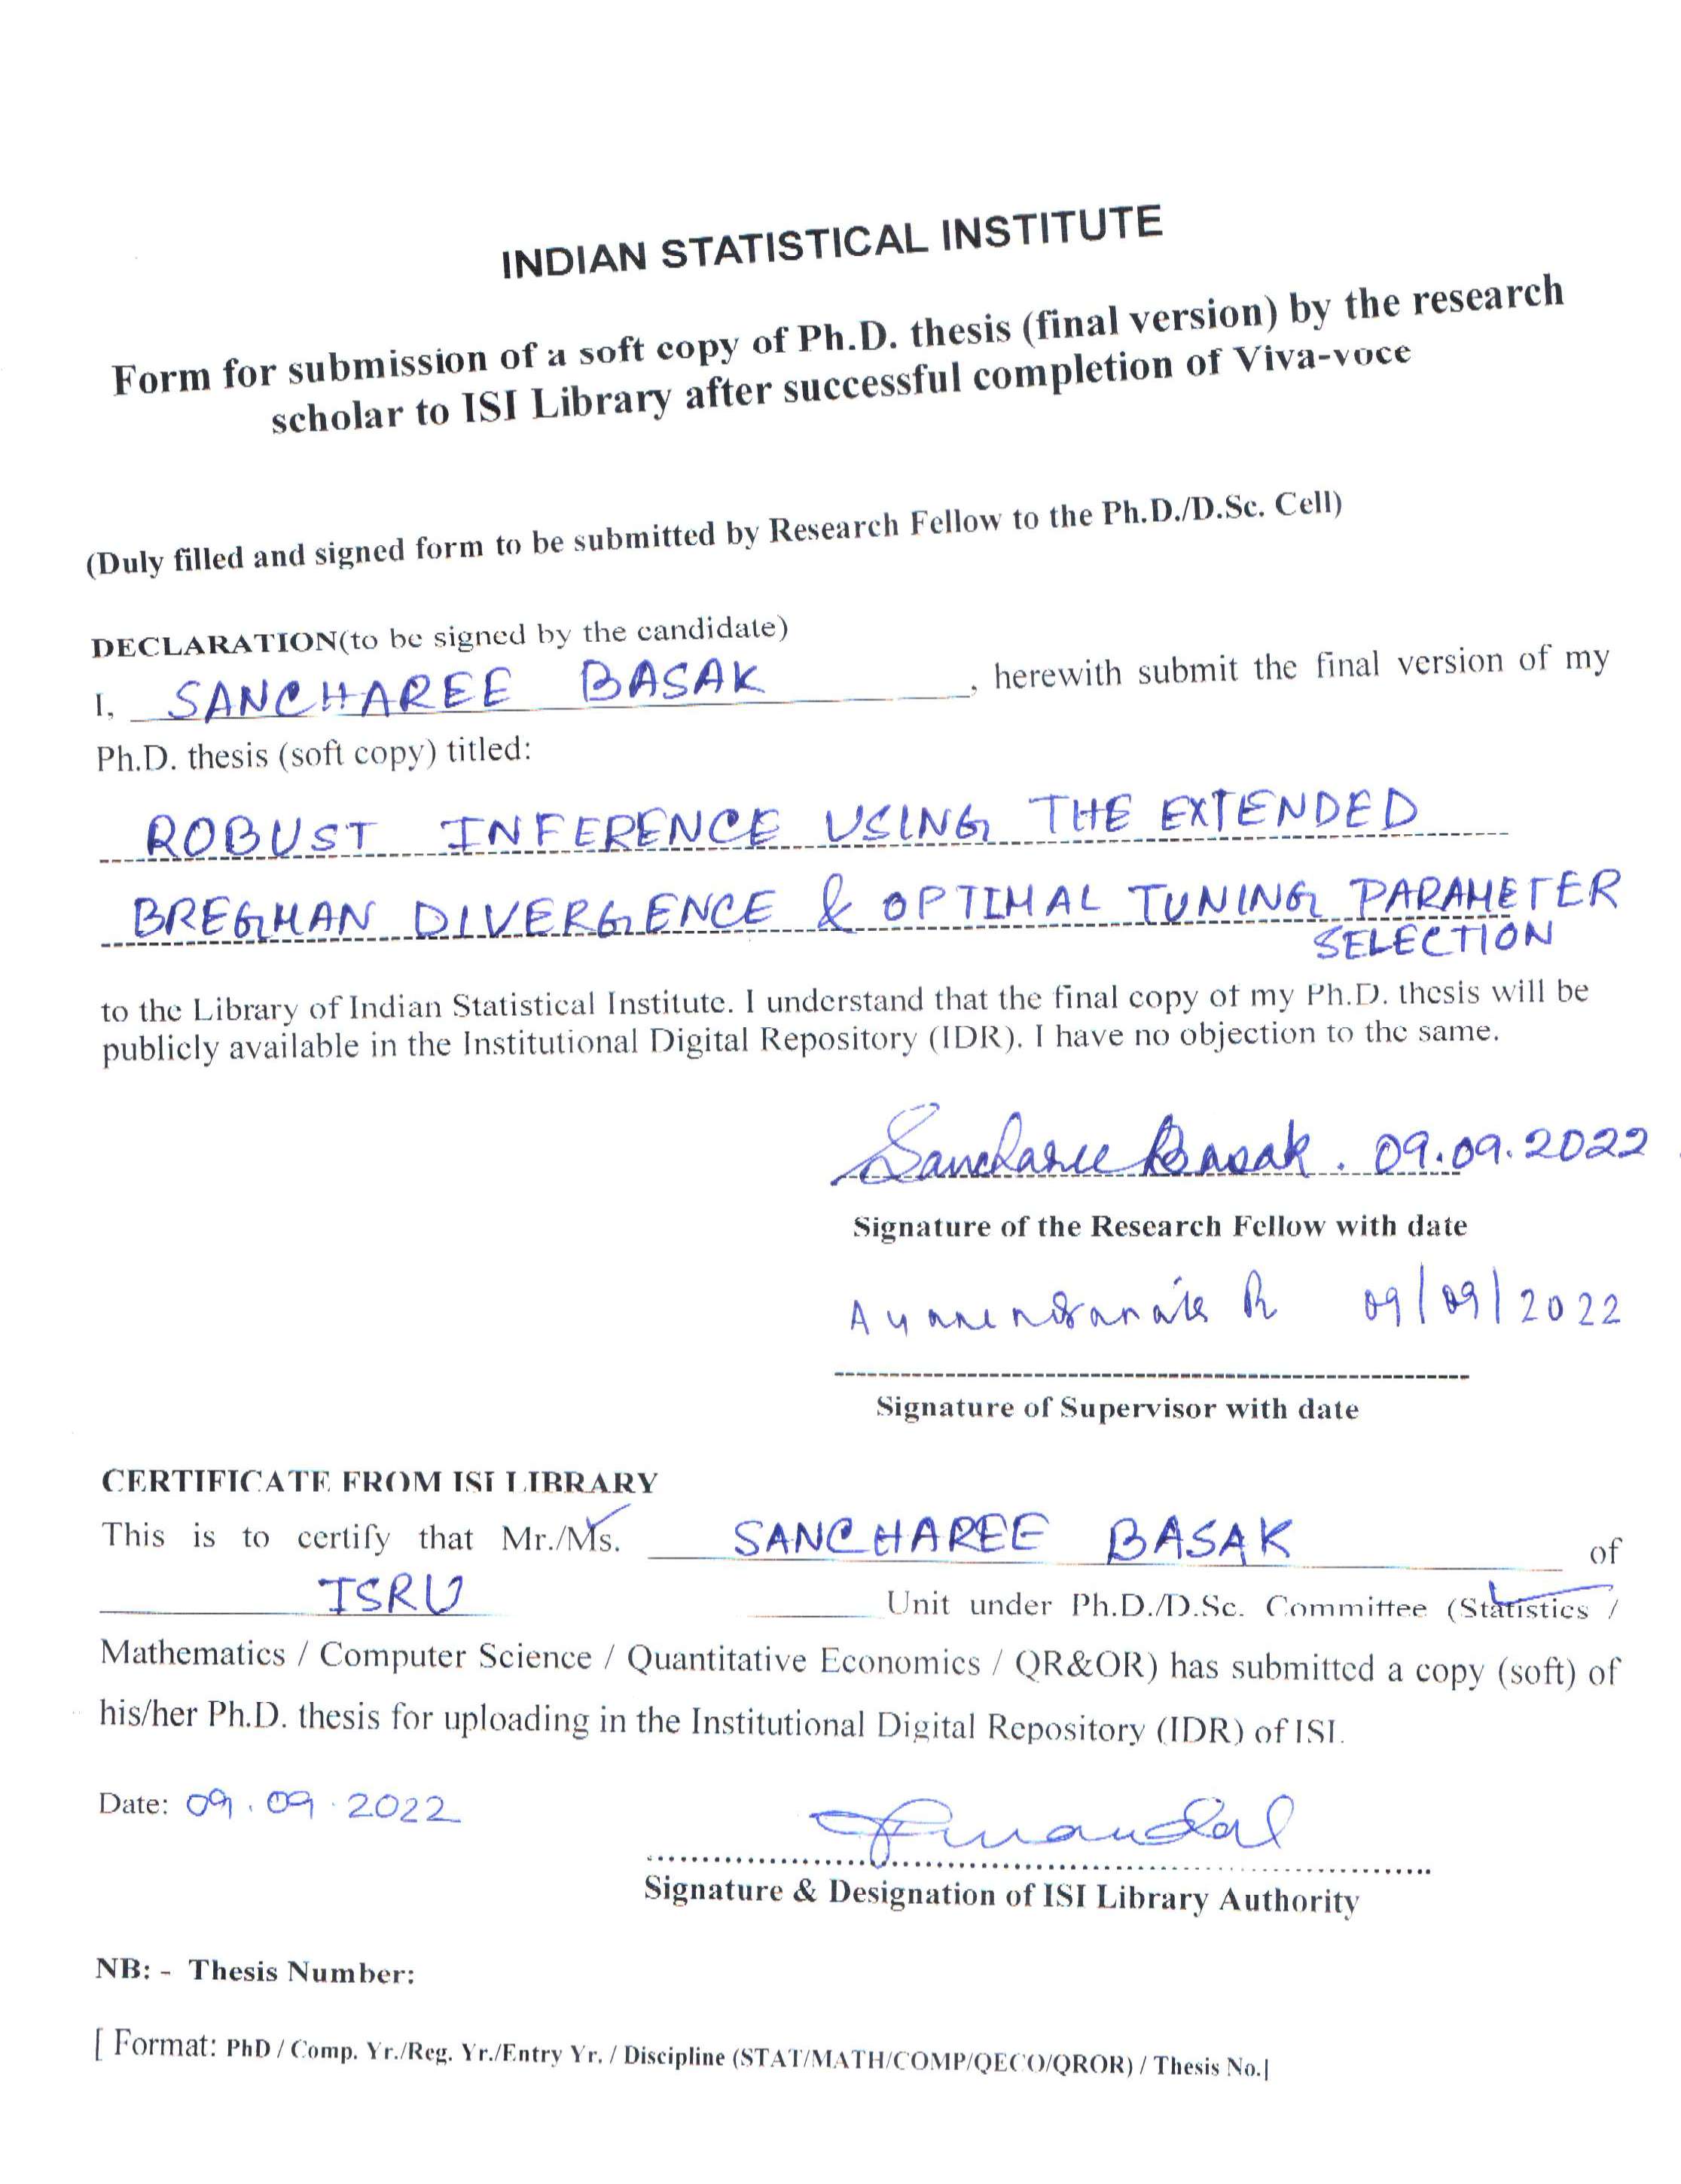 INDIAN STATISTICAL INSTITUTE
Form for submission of a soft copy of Ph.D. thesis (final version) by the research
scholar to ISI Library after successful completion of Viva-voce
(Duly filled and signed form to be submitted by Research Fellow to the Ph.D./D.Sc. Cell)
DECLARATION(to be signed by the candidate)
I, SANCHAREE BASAK, herewith submit the final version of my
Ph.D. thesis (soft copy) titled:
ROBUST INFERENCE USING THE EXTENDED
BREGMAN DIVERGENCE & OPTIMAL TUNING PARAMETER
SELECTION
to the Library of Indian Statistical Institute. I understand that the final copy of my Ph.D. thesis will be
publicly available in the Institutional Digital Repository (IDR). I have no objection to the same.
Sancharee Basak. 09.09.2022
Signature of the Research Fellow with date
09/09/2022
Signature of Supervisor with date
CERTIFICATE FROM ISI LIBRARY
This is to certify that Mr./Ms. SANCHAREE BASAK of
ISRU Unit under Ph.D./D.Sc. Committee (Statistics /
Mathematics / Computer Science / Quantitative Economics / QR&OR) has submitted a copy (soft) of
his/her Ph.D. thesis for uploading in the Institutional Digital Repository (IDR) of ISI.
Date: 09.09.2022
Signature & Designation of ISI Library Authority
NB: - Thesis Number:
[ Format: PhD / Comp. Yr./Reg. Yr./Entry Yr. / Discipline (STAT/MATH/COMP/QECO/QROR) / Thesis No.]